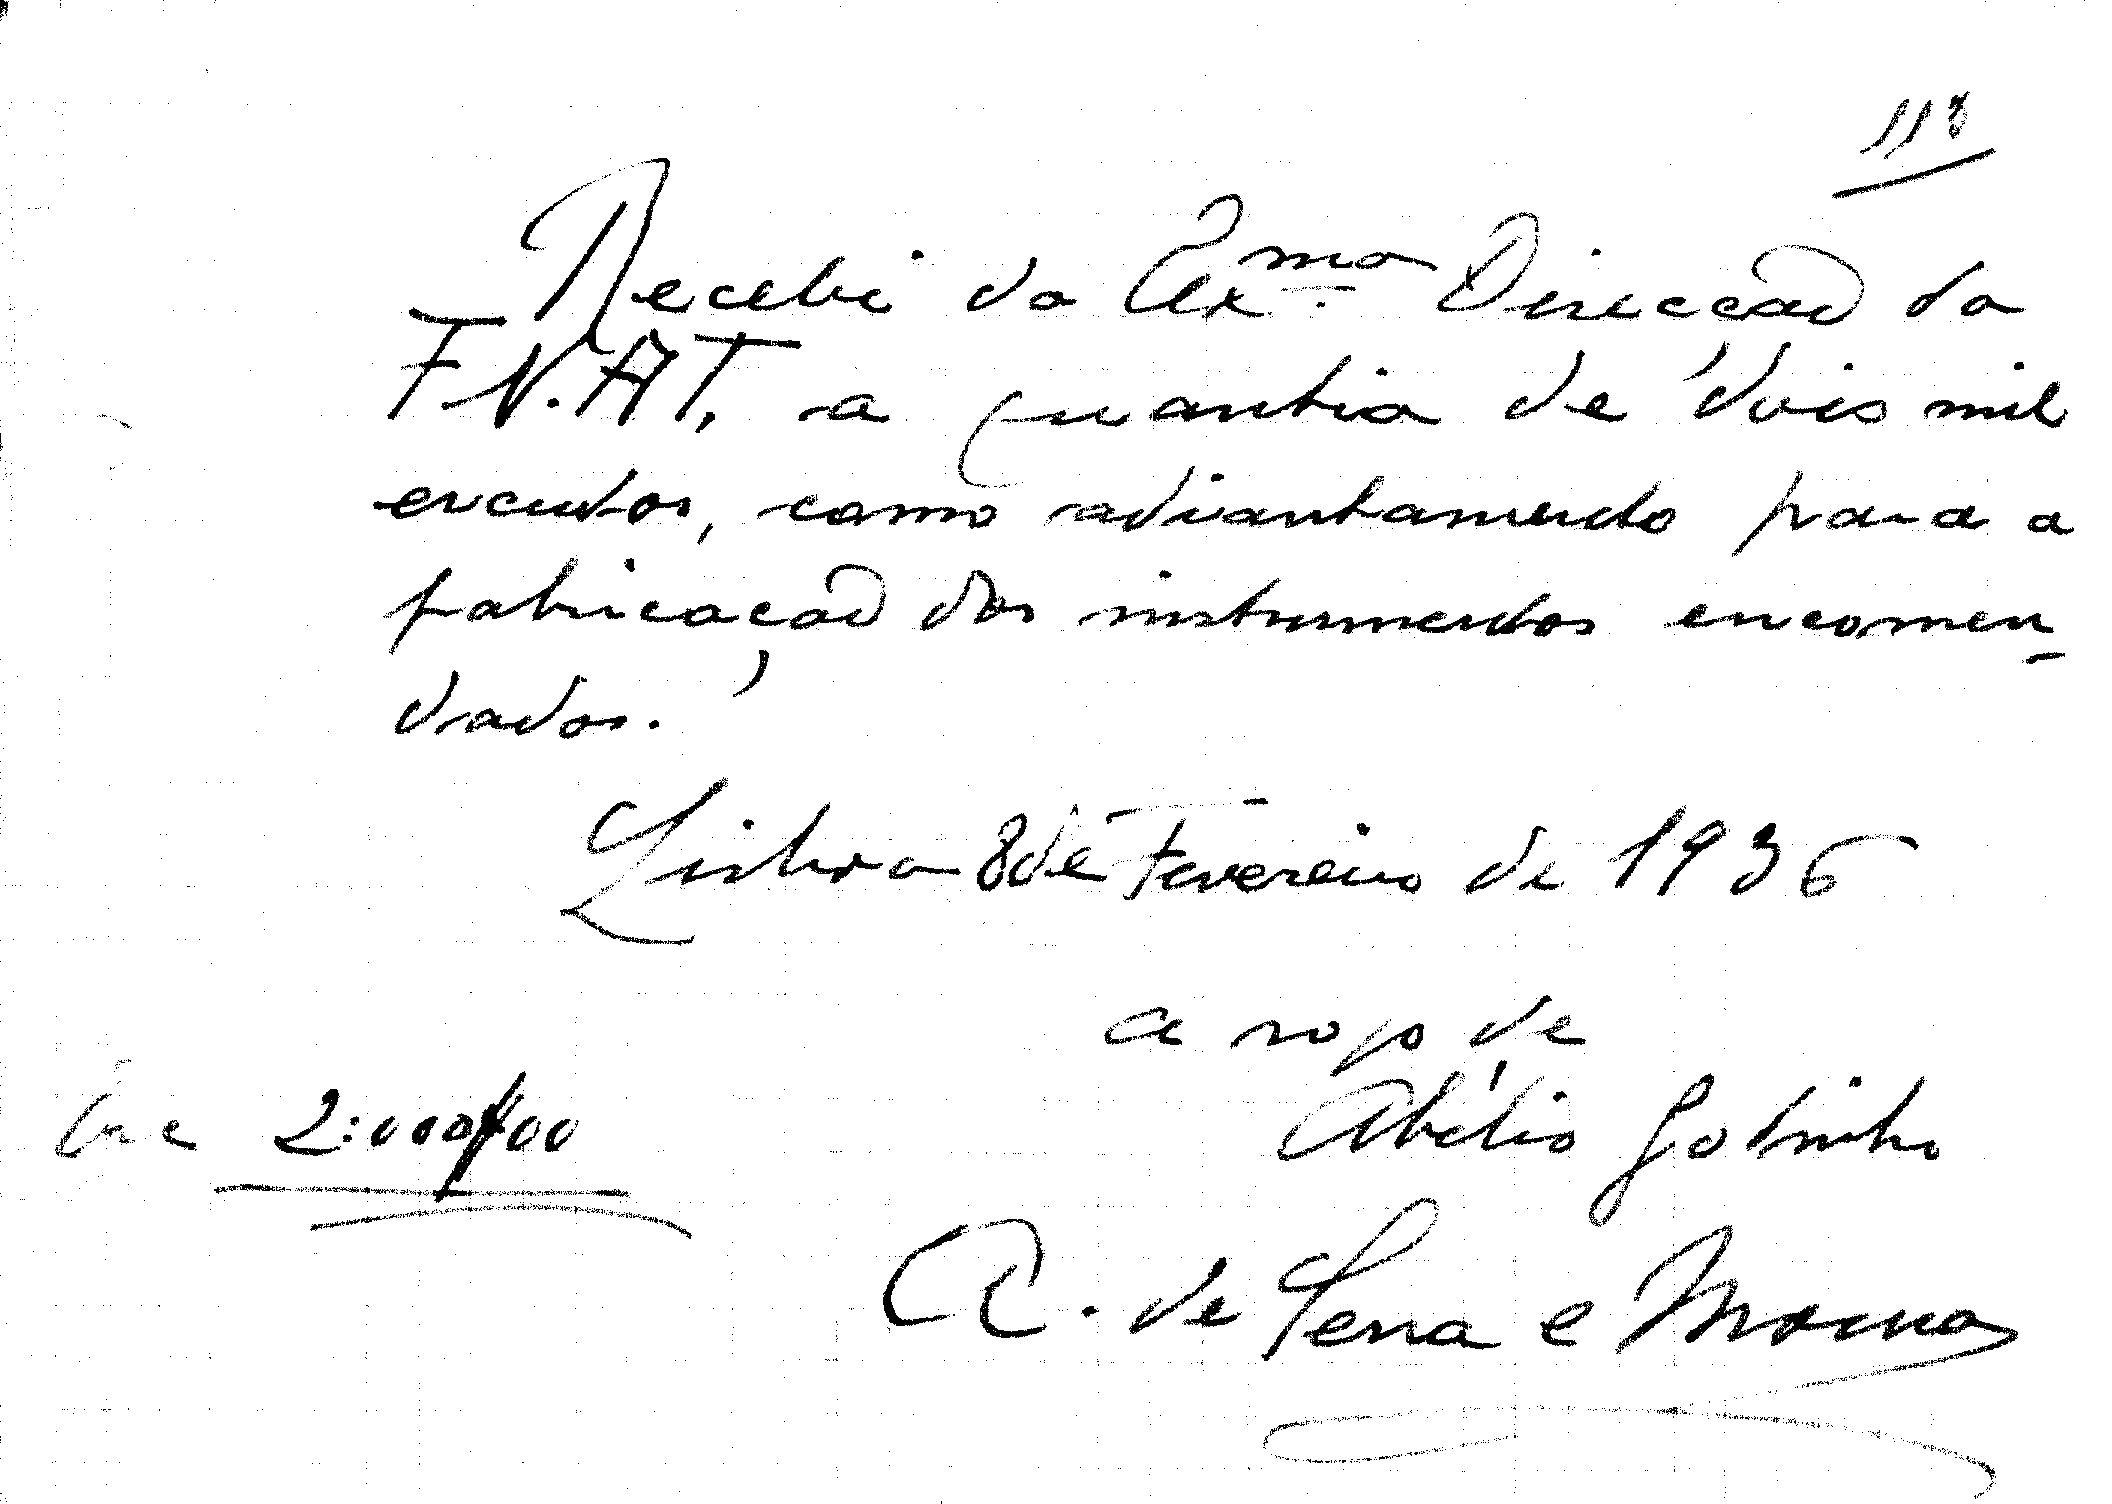 118
Recebi da Exma. Direcção da
F.N.A.T. a quantia de dois mil
escudos, como adiantamento para a
fabricação dos instrumentos encomen-
dados.
Lisboa 8 de Fevereiro de 1936
a rogo de
Abélio Godinho
Esc 2:000$00
A. de Sena e Moura